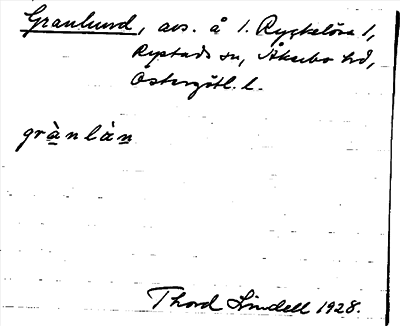 Granlund, avs. å 1. Ryckelösa 1,
Rystads sn, Åkerbo hd,
Östergötl. l.
grànlàn
Thord Lindell 1928.